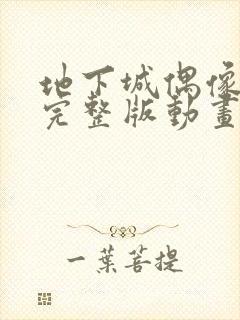 地下城偶像
完整版動畫
一葉菩提